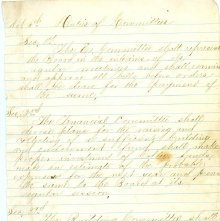 Art 3rd Duties of Committees
Sec. 1st
The Ex. Committee shall represent
the Board in the interim of its
regular meetings and shall examine
and approve all bills when orders
shall be drawn for the payment of
the same.
Sec. 2nd
The Financial Committee shall
devise plans for the raising and
of a necessary building
and endowment fund, shall make
proper investment of these funds,
make an estimate of the probable
expenses for the next year and present
the same to the Board at its
regular session.
Sec. 3rd
The Building Committee shall